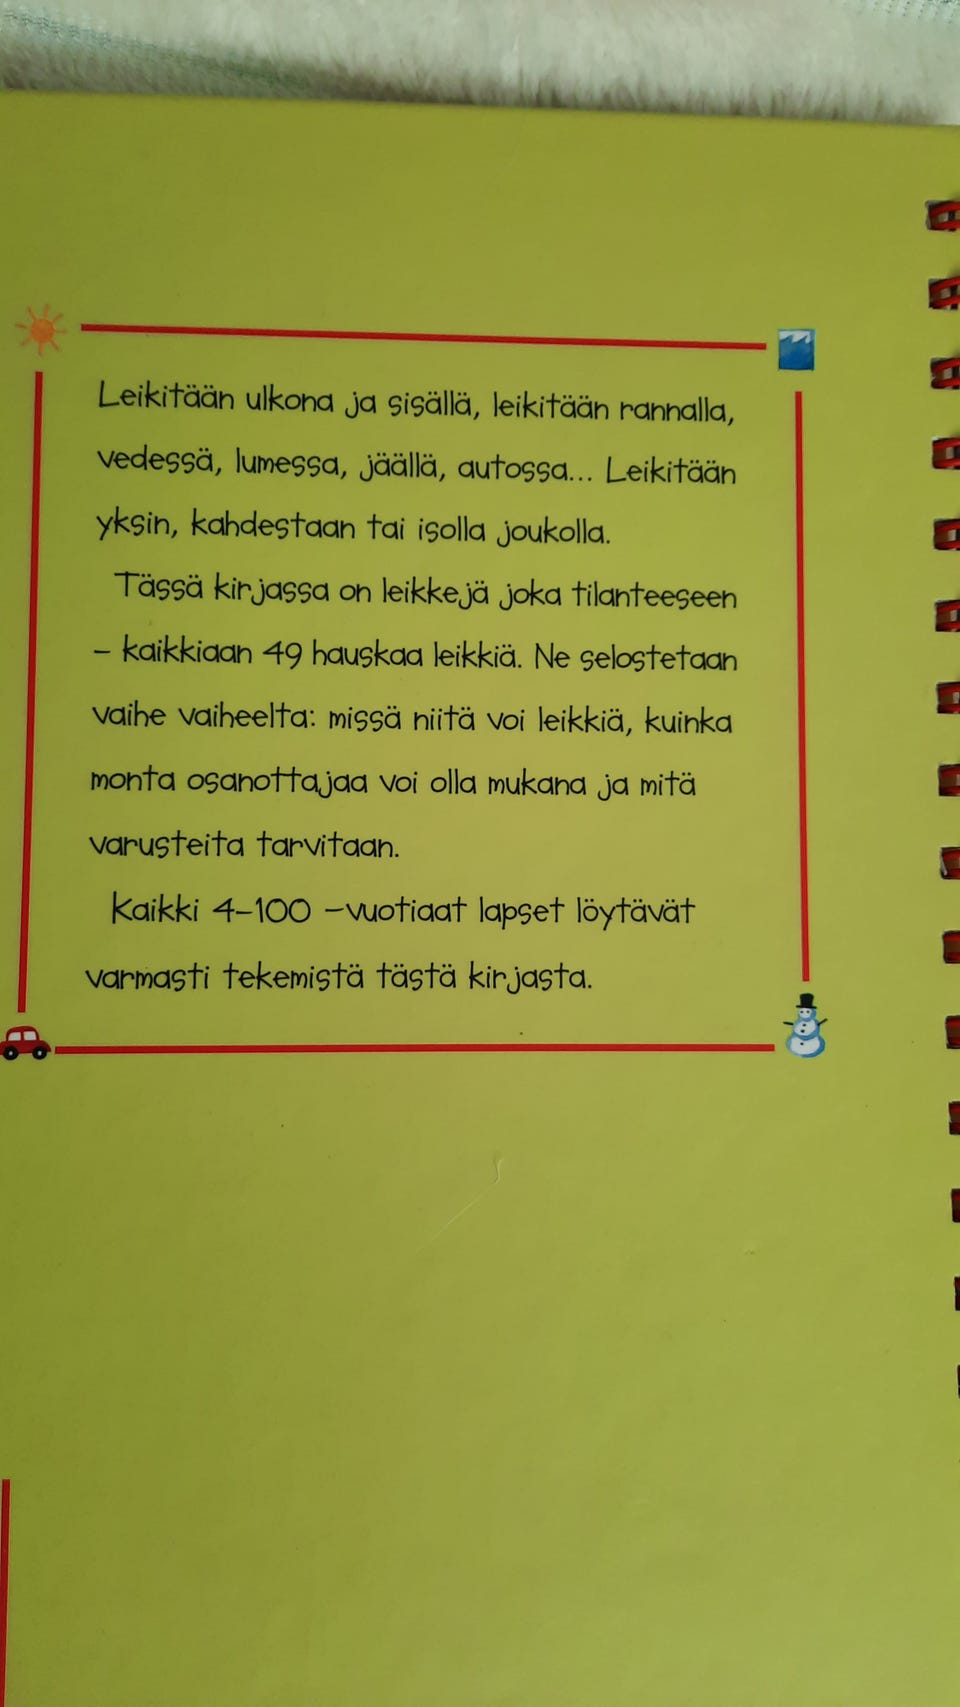 Leikitään ulkona ja sisällä, leikitään rannalla,
vedessä, lumessa, jäällä, autossa... Leikitään
yksin, kahdestaan tai isolla joukolla.
Tässä kirjassa on leikkejä joka tilanteeseen
– kaikkiaan 49 hauskaa leikkiä. Ne selostetaan
vaihe vaiheelta: missä niitä voi leikkiä, kuinka
monta osanottajaa voi olla mukana ja mitä
varusteita tarvitaan.
Kaikki 4–100 –vuotiaat lapset löytävät
varmasti tekemistä tästä kirjasta.